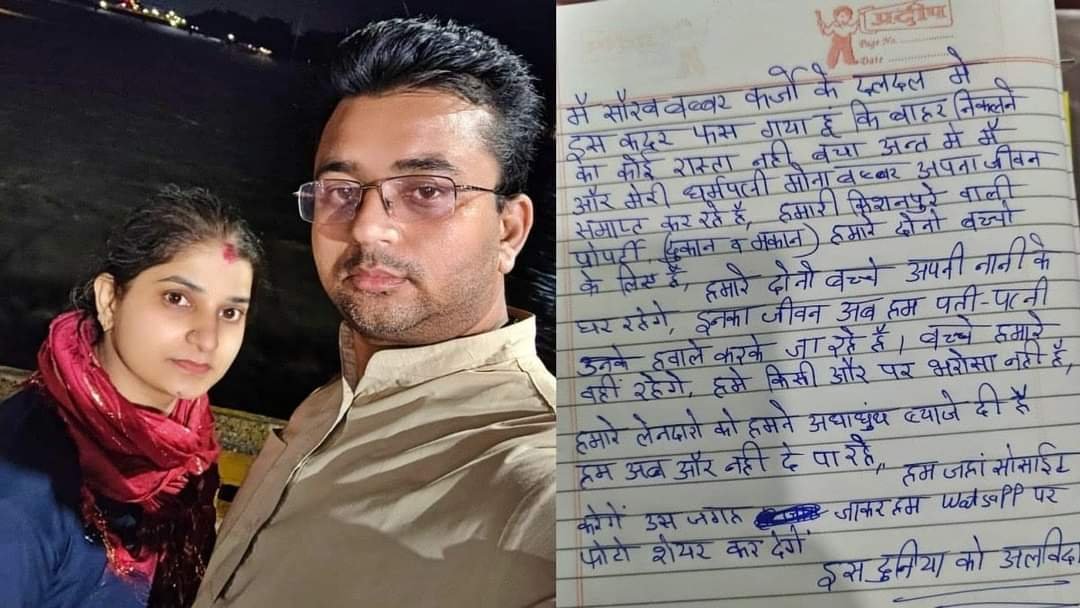 प्रदीप
Page No.
Date
मै सौरव बब्बर कर्जो के दलदल मे
इस कदर फस गया हूं कि बाहर निकलने
का कोई रास्ता नही बचा अन्त मे मैं
और मेरी धर्मपत्नी मोना बब्बर अपना जीवन
समाप्त कर रहे है, हमारी किशनपुरे वाली
प्रोपर्टी, (दुकान व मकान) हमारे दोनो बच्चो
के लिए है, हमारे दोनो बच्चे अपनी नानी के
घर रहेगे, इनका जीवन अब हम पती-पत्नी
उनके हवाले करके जा रहे है। बच्चे हमारे
वहीं रहेगे, हमे किसी और पर भरोसा नही है,
हमारे लेनदारो को हमने अंधाधुंध ब्याजे दी है
हम अब और नही दे पा रहे, हम जहां सोसाईट
करेगें उस जगह जाकर हम Watsapp पर
फोटो शेयर कर देगें
इस दुनिया को अलविदा